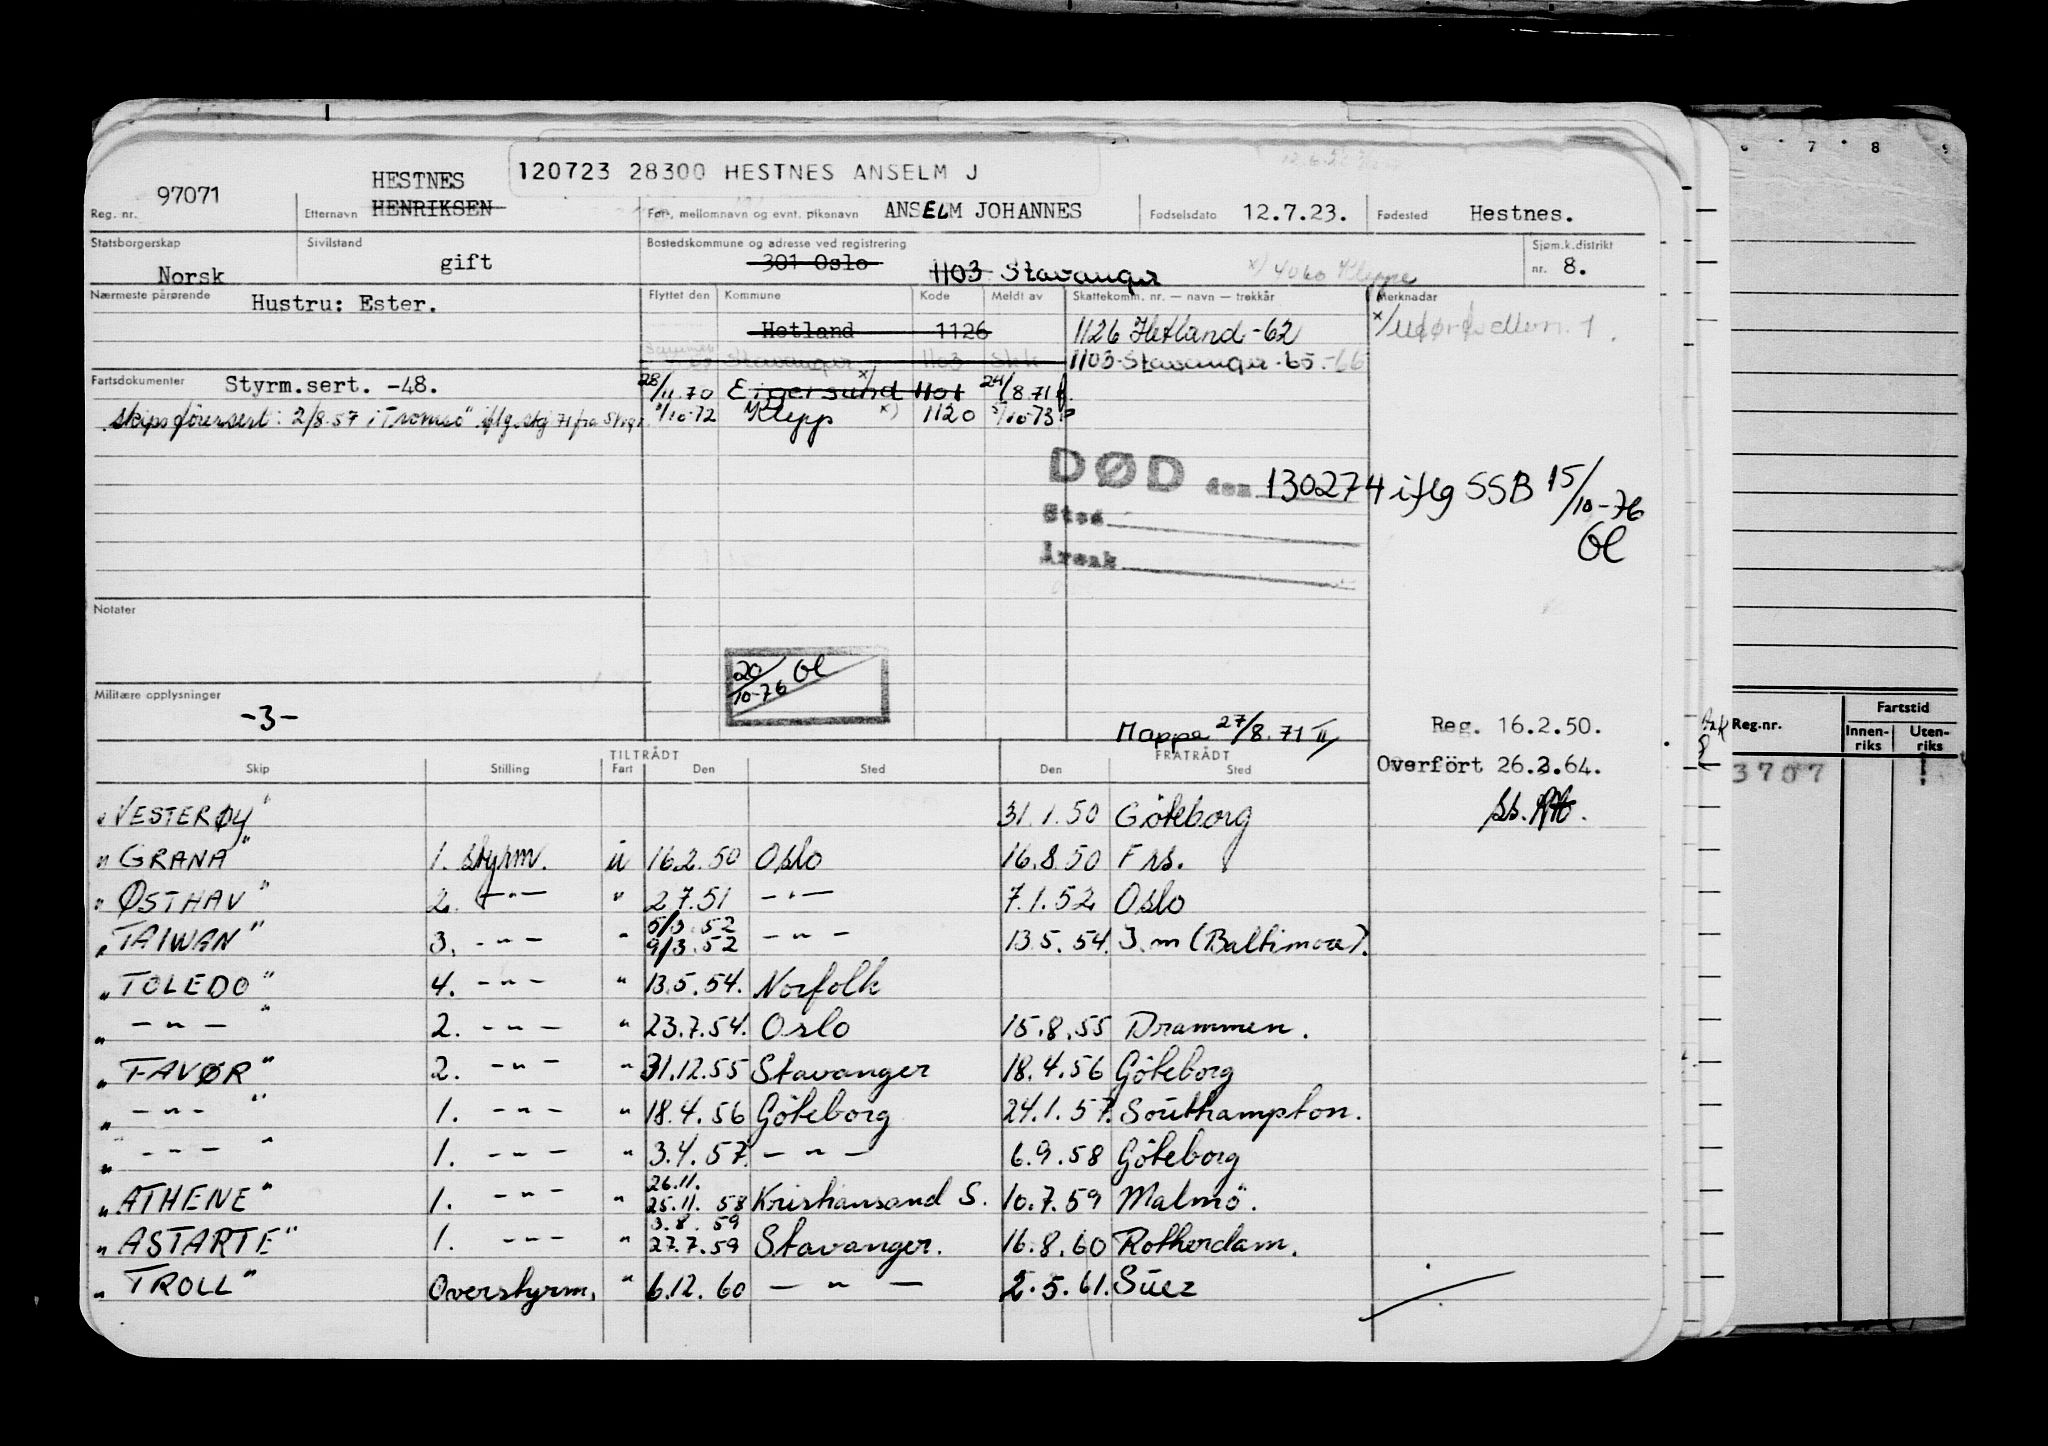 120723 28300 HESTNES ANSELM J
Reg. nr. 97071 Etternavn HESTNES HENRIKSEN For-, mellomnavn og evnt. pikenavn ANSELM JOHANNES Fødselsdato 12.7.23. Fødested Hestnes.
Statsborgerskap Norsk Sivilstand gift Bostedskommune og adresse ved registrering 301 Oslo 1103 Stavanger x) 4060 Kleppe Sjøm.k.distrikt nr. 8.
Nærmeste pårørende Hustru: Ester. Flyttet den Kommune Kode Meldt av Skattekomm. nr. — navn — trekkår Merknader
Hetland 1126 1126 Hetland -62
Stavanger 1103 Skk 1103 Stavanger -65 -66
Fartsdokumenter Styrm.sert. -48. 28/11.70 Eigersund x) 1101 24/8.71
Skipsførersert: 2/8.57 i Tromsø iflg. skj 71 fra /10-72 Klepp x) 1120 /10-73
DØD den 130274 iflg SSB 15/10-76
Ol
Sted
Årsak
Notater
20/10-76 Ol
Militære opplysninger
-3-
Mappe 27/8.71 II
Reg. 16.2.50.
Overført 26.2.64.
TILTRÅDT FRATRÅDT
Skip Stilling Fart Den Sted Den Sted
"VESTERØY" 31.1.50 Göteborg
"GRANA" 1. styrm. u 16.2.50 Oslo 16.8.50 Frs.
"ØSTHAV" 2. -"- " 2.7.51 -"- 7.1.52 Oslo
"TAIWAN" 3. -"- " 5/3.52 9/3.52 -"- 13.5.54. J.m (Baltimore).
"TOLEDO" 4. -"- " 13.5.54. Norfolk
" -"- " 2. -"- " 23.7.54. Oslo 15.8.55 Drammen.
"FAVØR" 2. -"- " 31.12.55 Stavanger 18.4.56 Göteborg
" -"- " 1. -"- " 18.4.56 Göteborg 24.1.57. Southampton.
" -"- " 1. -"- " 3.4.57. -"- 6.9.58 Göteborg
"ATHENE" 1. -"- " 26.11. 25.11.58 Kristiansand S. 10.7.59 Malmö.
"ASTARTE" 1. -"- " 3.8.59 27.7.59 Stavanger. 16.8.60 Rotterdam.
"TROLL" Overstyrm. " 6.12.60 -"- 2.5.61. Suez
7 8 9
Reg.nr. Fartstid
Innen-riks Uten-riks
3707